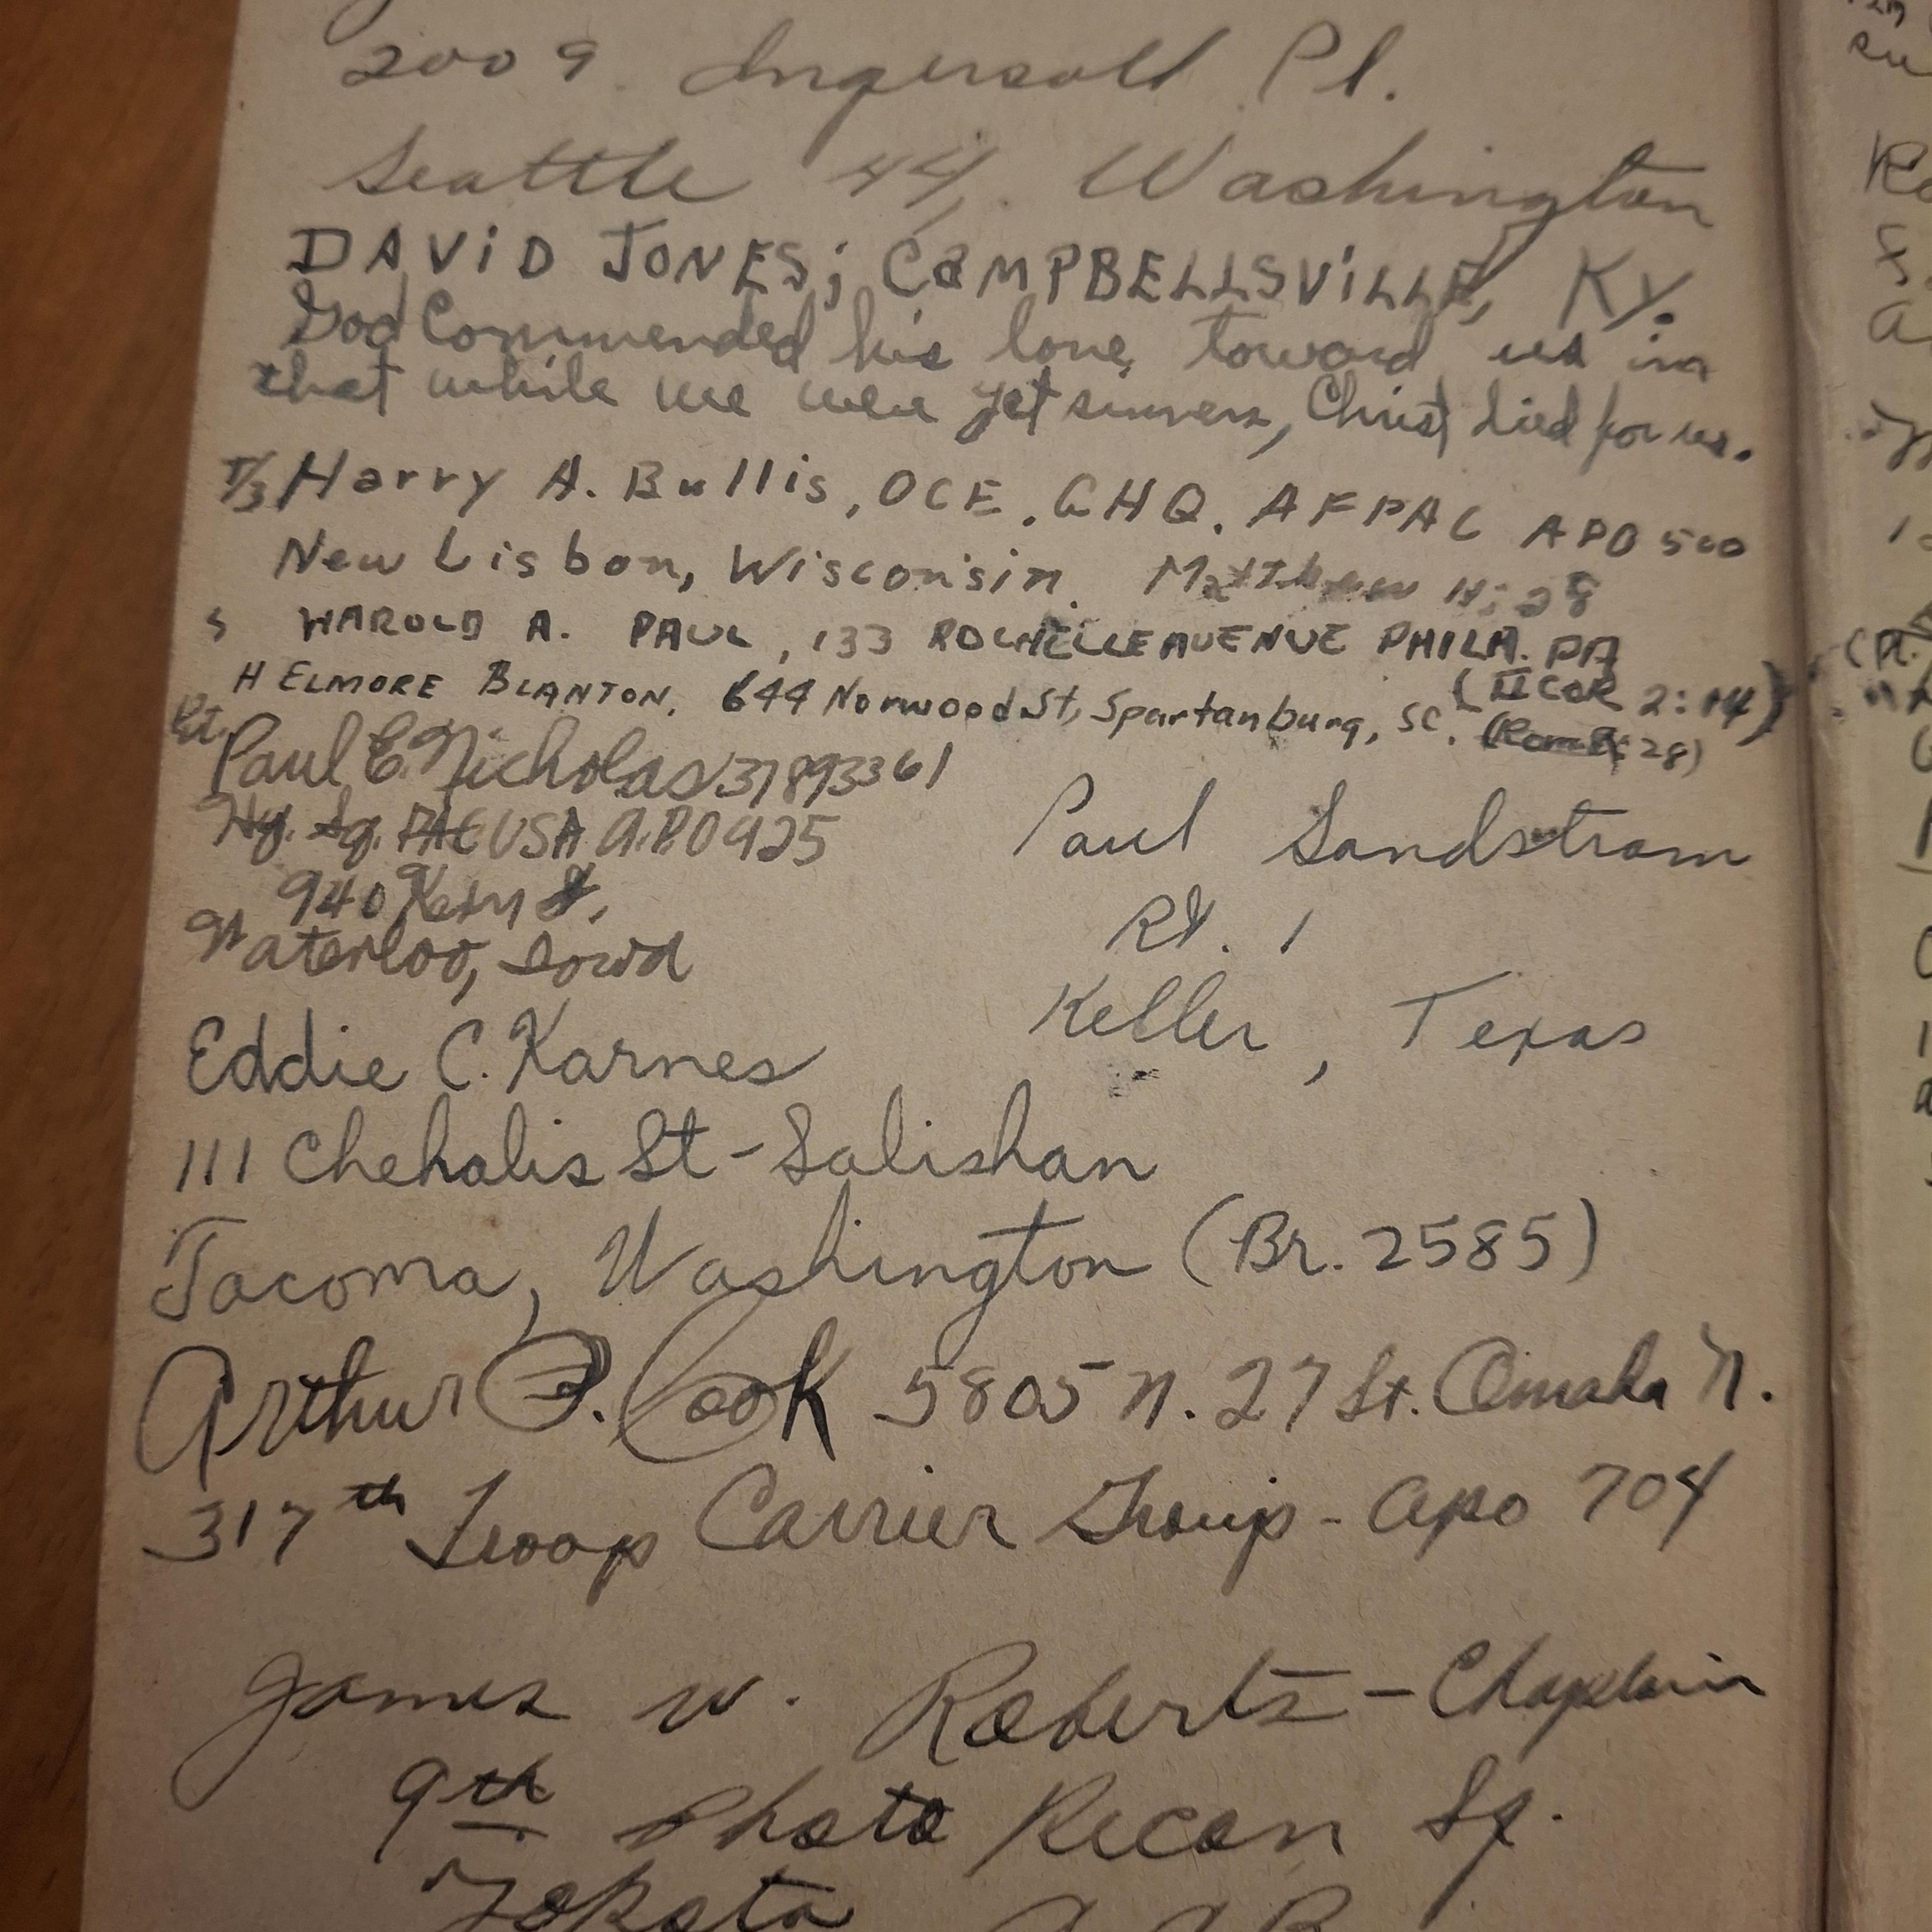 2009 Ingersoll Pl.
Seattle 44, Washington
DAViD JONES; CaMPBELLSViLLE, KY.
God Commended his love toward us in
that while we were yet sinners, Christ died for us.
T/3 Harry A. Bullis, OCE, GHQ. AFPAC APO 500
New Lisbon, Wisconsin. Matthew 11:28
HAROLD A. PAUL, 133 ROCHELLE AVENUE PHILA. PA
(II COR 2:14)
H ELMORE BLANTON, 644 Norwood St, Spartanburg, SC. (Rom 8:28)
Paul E. Nicholas 37893361
Hq. Sq. FAEUSA A.P.O 925
940
Waterloo, Iowa
Paul Sandstrom
Rt. 1
Keller, Texas
Eddie C. Karnes
111 Chehalis St - Salishan
Tacoma, Washington (Br. 2585)
Arthur P. Cook 5805 N. 27 St. Omaha N.
317th Troop Carrier Group - Apo 704
James W. Roberts - Chaplain
9th Photo Recon Sq.
Yokota